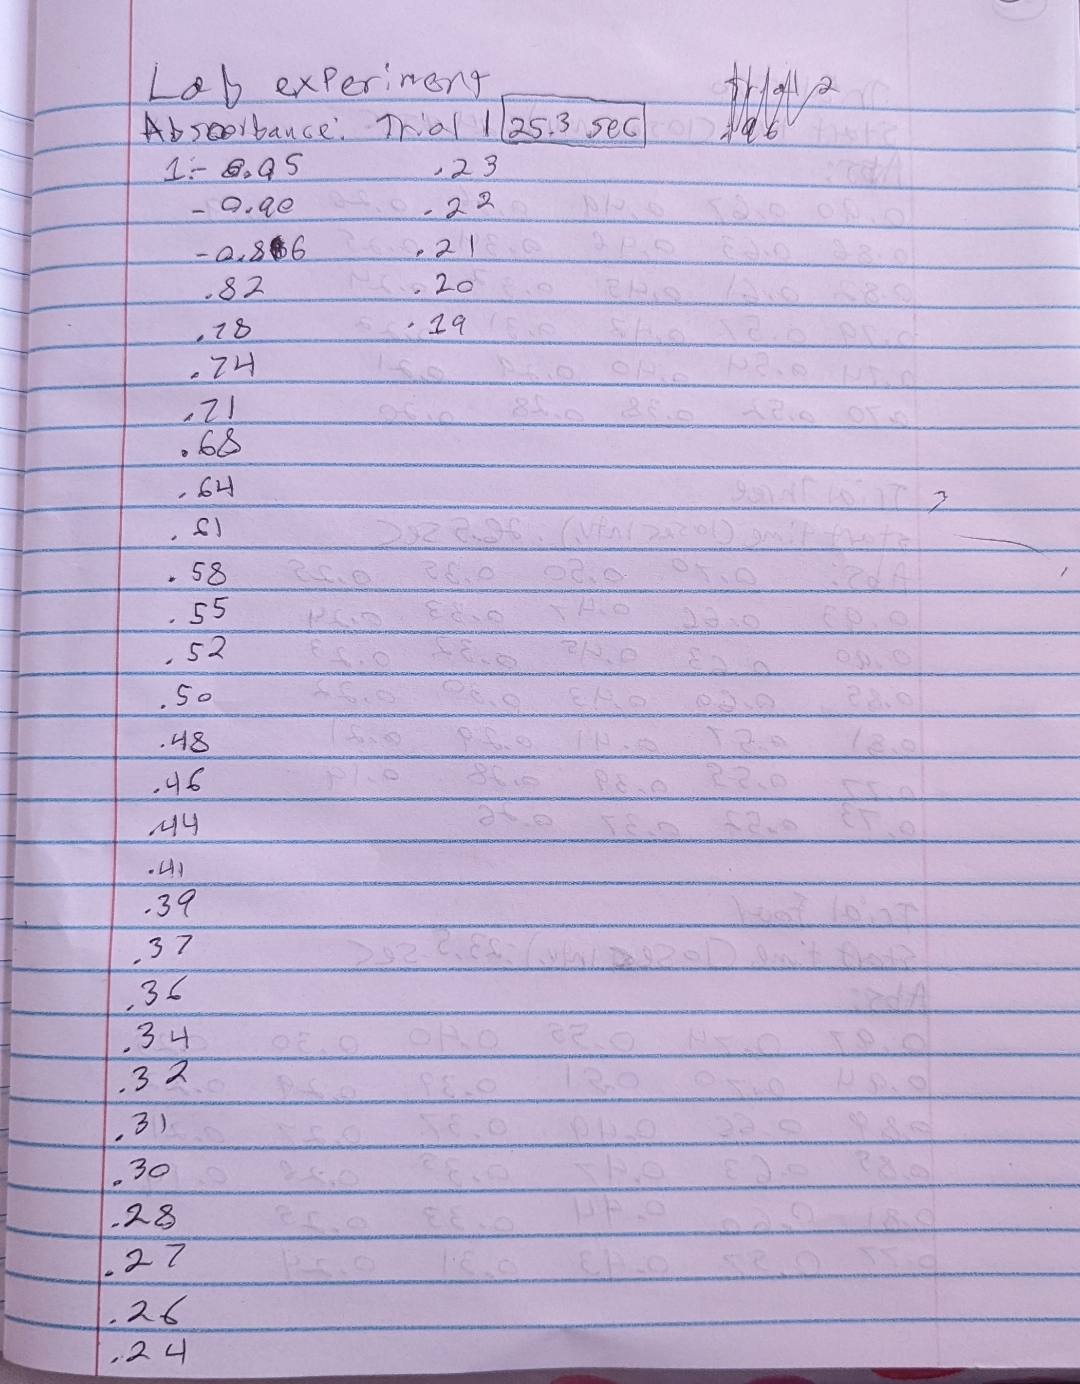 Lab experiment
Absorbance: Trial 1 25.3 sec
1:- 0.95
- 0.90
- 0.86
.82
.78
.74
.71
.68
.64
.61
.58
.55
.52
.50
.48
.46
.44
.41
.39
.37
.36
.34
.32
.31
.30
.28
.27
.26
.24
.23
.22
.21
.20
.19